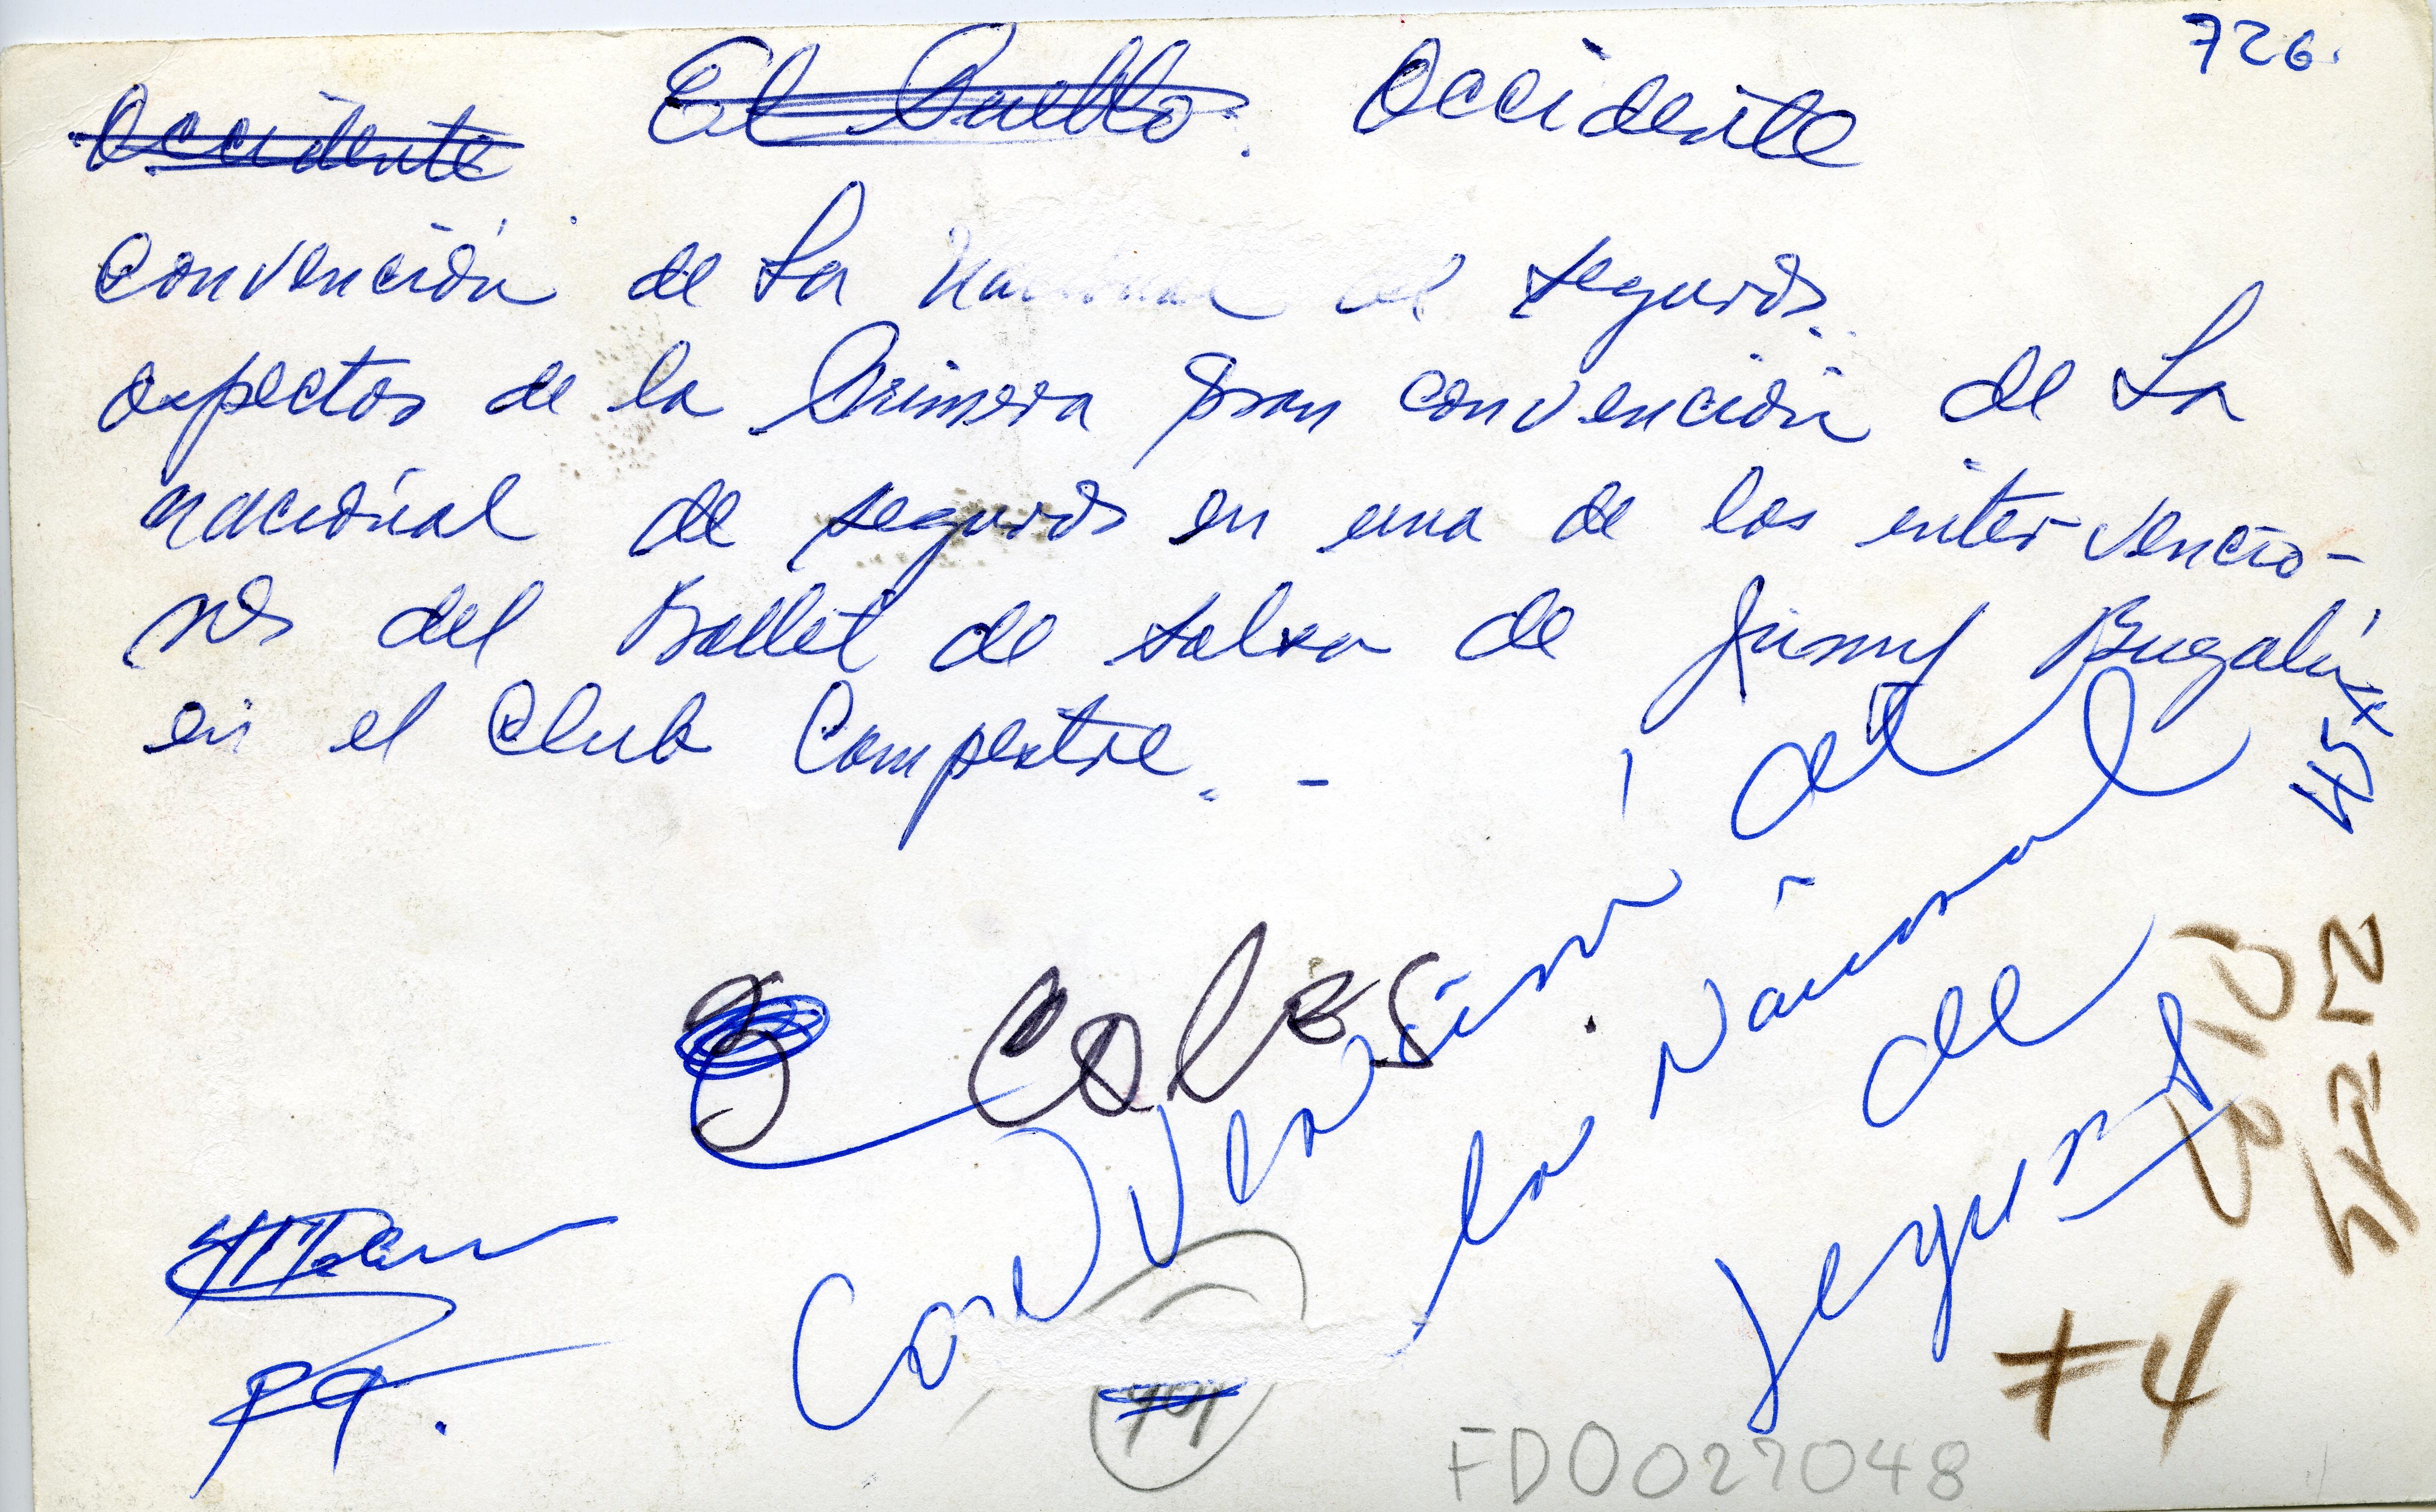 726.
Occidente El Pueblo. Occidente
Convención de La Nacional de seguros.
aspectos de la Primera gran convención de La
nacional de seguros en una de las intervencio-
nes del Ballet de salsa de Jimmy Bugalú
en el Club Campestre. -
3 Coles
Convención de
la Nacional
de
seguros
#4
FD0027048